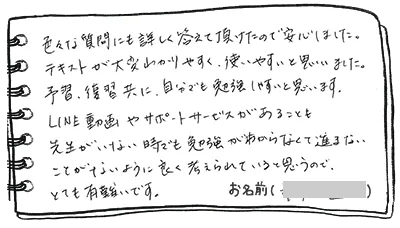 色々な質問にも詳しく答えて頂けたので安心しました。
テキストが大変わかりやすく、使いやすいと思いました。
予習、復習共に、自分でも勉強しやすいと思います。
LINE動画やサポートサービスがあることも
先生がいない時でも勉強がわからなくて進まない
ことがないように良く考えられていると思うので、
とても有難いです。
お名前( )